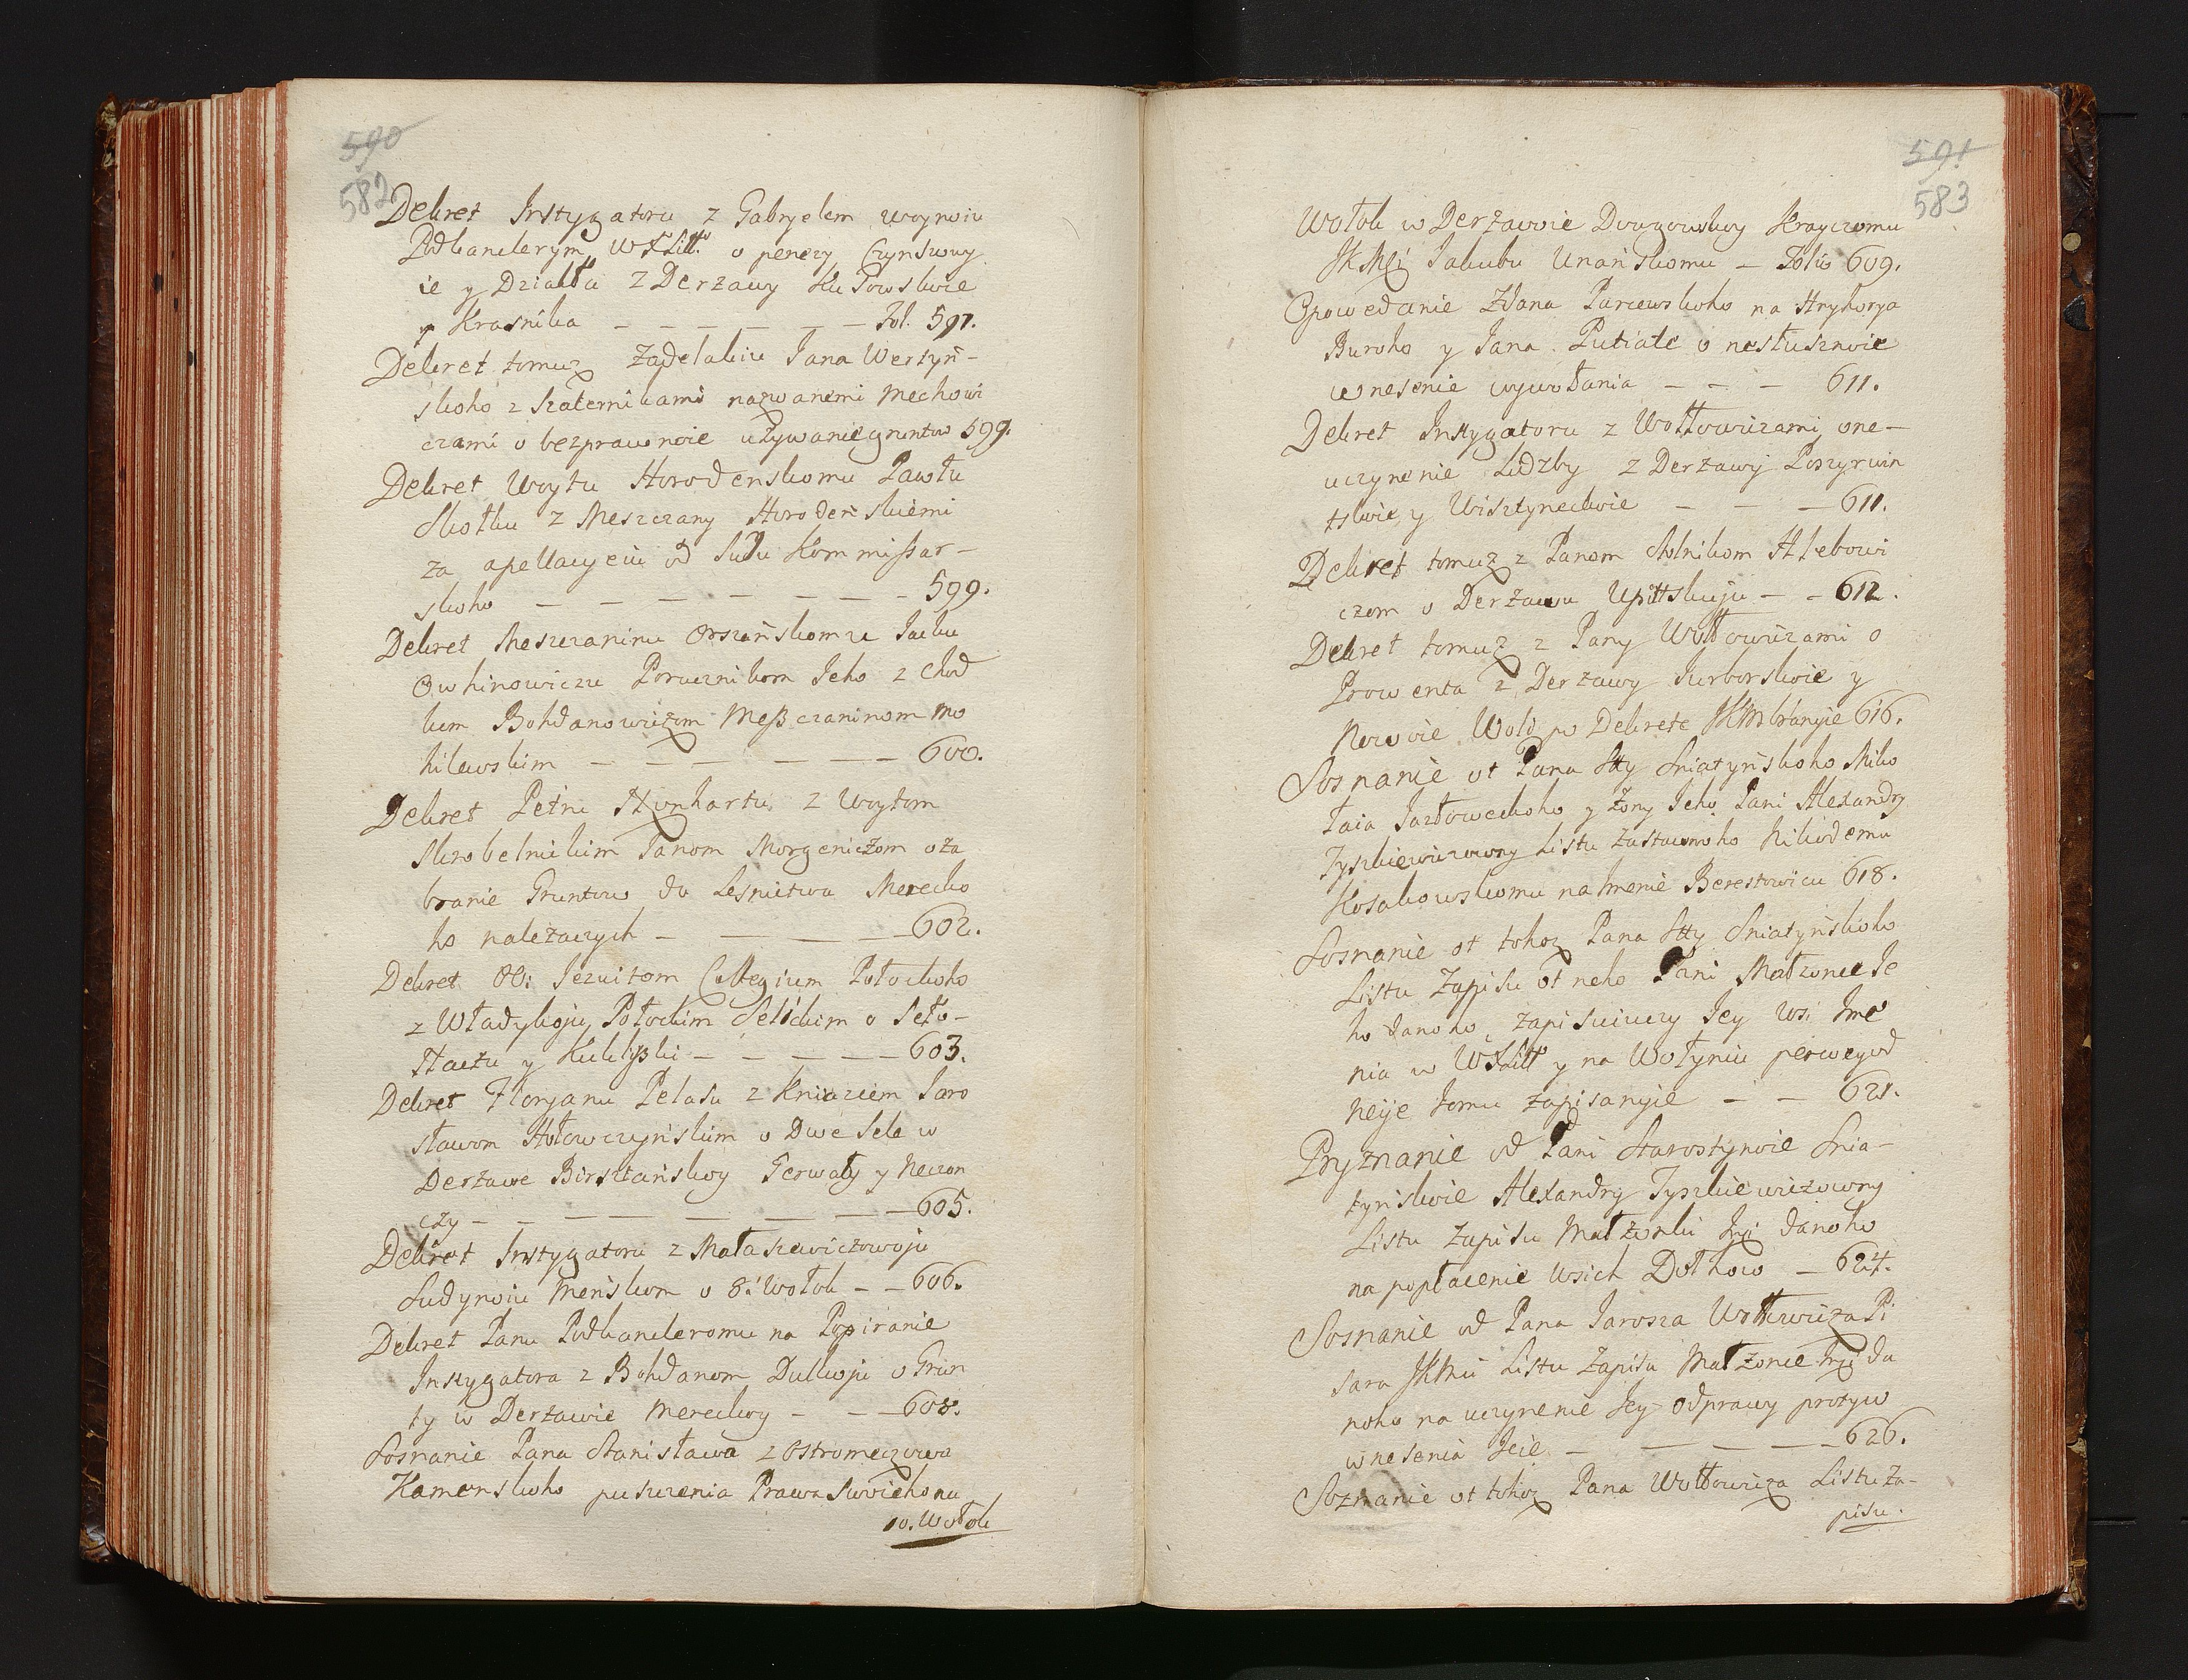 590
582
Dekret Instygatoru z Gabryelem Woynoiu
Podkanclerym WXLitt. o penezy Czynszowy
ie y Działła z Derzawy
y Krasnika — — — — — — Fol. 597.
Dekret tomuż Zadelakiu Jana Wersyń-
skoho z szaternikami nazwanemi Mechowi
czami o bezprawnoie używanie gruntow 599.
Dekret Woytu Horodenskomu Pawłu
Kotku z Meszczany Horodenskiemi
za apellacyeiu od Sudu Kommissar-
skoho — — — — — — — 599.
Dekret Meszczaninu Orszańskomu Jacku
Owhinowiczu Porucznikom Jeho z Chod
kiem Bohdanowiczom Messczaninom Mo
hilewskim — — — — — — 600.
Dekret Petru Hunhartu z Woytom
Skrobelnickim Janom Morgeniczom o za
branie Gruntow do Lesnictwa Merecko
ho należaczych — — — — — 602.
Dekret OO: Jezuitom Collegium Połockoho
z Władykoju Połockim Selickim o Seło-
y — — — — — 603.
Dekret Floryanu Pelasu z Kniaziem Jaro
sławom Hołowczyńskim o Dwe Sele w
Derżawe Birsztańskoy Gerwaty y Neczon
czy — — — — — — — 605.
Dekret Instygatoru z Mataszewiczowoju
Sudynoiu Menskom o 8: Wołok — — 606.
Dekret Panu Podkancleromu na Popiranie
Instygatora z Bohdanom Dulkoju o Grun
ty w Derżawie Mereckoy — — — 608.
Sosnanie Pana Stanisława z Ostromeczowa
Kamenskoho puszczenia Prawa Swoiehona
10. Wołok
591
583
Wołok w Derżawie Dougowskoy Krayczomu
JKMci Jakubu Unańskomu — Folio 609.
Opowedanie Zdana Parcewskoho na Hryhorya
Buroho y Jana Putiate o nesłusznoie
wnesenie wywołania — — — 611.
Dekret Instygatoru z Wołłowiczami o ne-
uczynenie Liczby z Derżawy Poszyrwin
tskoie y Wisztyneckoie — — — 611.
Dekret tomuż z Panom Stolnikom Hlebowi
czom o Derżawu Upittskuju — — 612.
Dekret tomuż z Pany Wołłowiczami o
Prowenta z Derżawy Jurborskoie y
Nowoie Woli po Dekrete JKM branyie 616.
Sosnanie ot Pana Stty Sniatyńskoho Miko
łaia Jazłoweckoho y Żony Jeho Pani Alexandry
Tyszkiewiczowny Listu Zastawnoho Nikodemu
Kosakowskomu na Imenie Berestowicu 618.
Sosnanie ot tohoż Pana Stty Sniatyńskoho
Listu Zapisu ot neho Pani Małżonce Je
ho danoho, Zapisuiuczy Jey wsi Ime
nia w WXLitt y na Wołyniu perwey od
neije Jomu zapisanyie — — 621.
Pryznanie od Pani Starostynoie Snia-
tynskoie Alexandry Tyszkiewiczowny
Listu Zapisu Małżonku Jej danoho
na popłacenie wsich Dołhow — 624.
Sosnanie od Pana Jarosza Wołłowicza Pi
sara JKMci Listu Zapisu Małżonce Jeji da
noho na uczynenie Jey odprawy protyw
wnesenia Jeie — — — — — 626.
Soznanie ot tohoż Pana Wołłowicza Listu Za-
pisu.